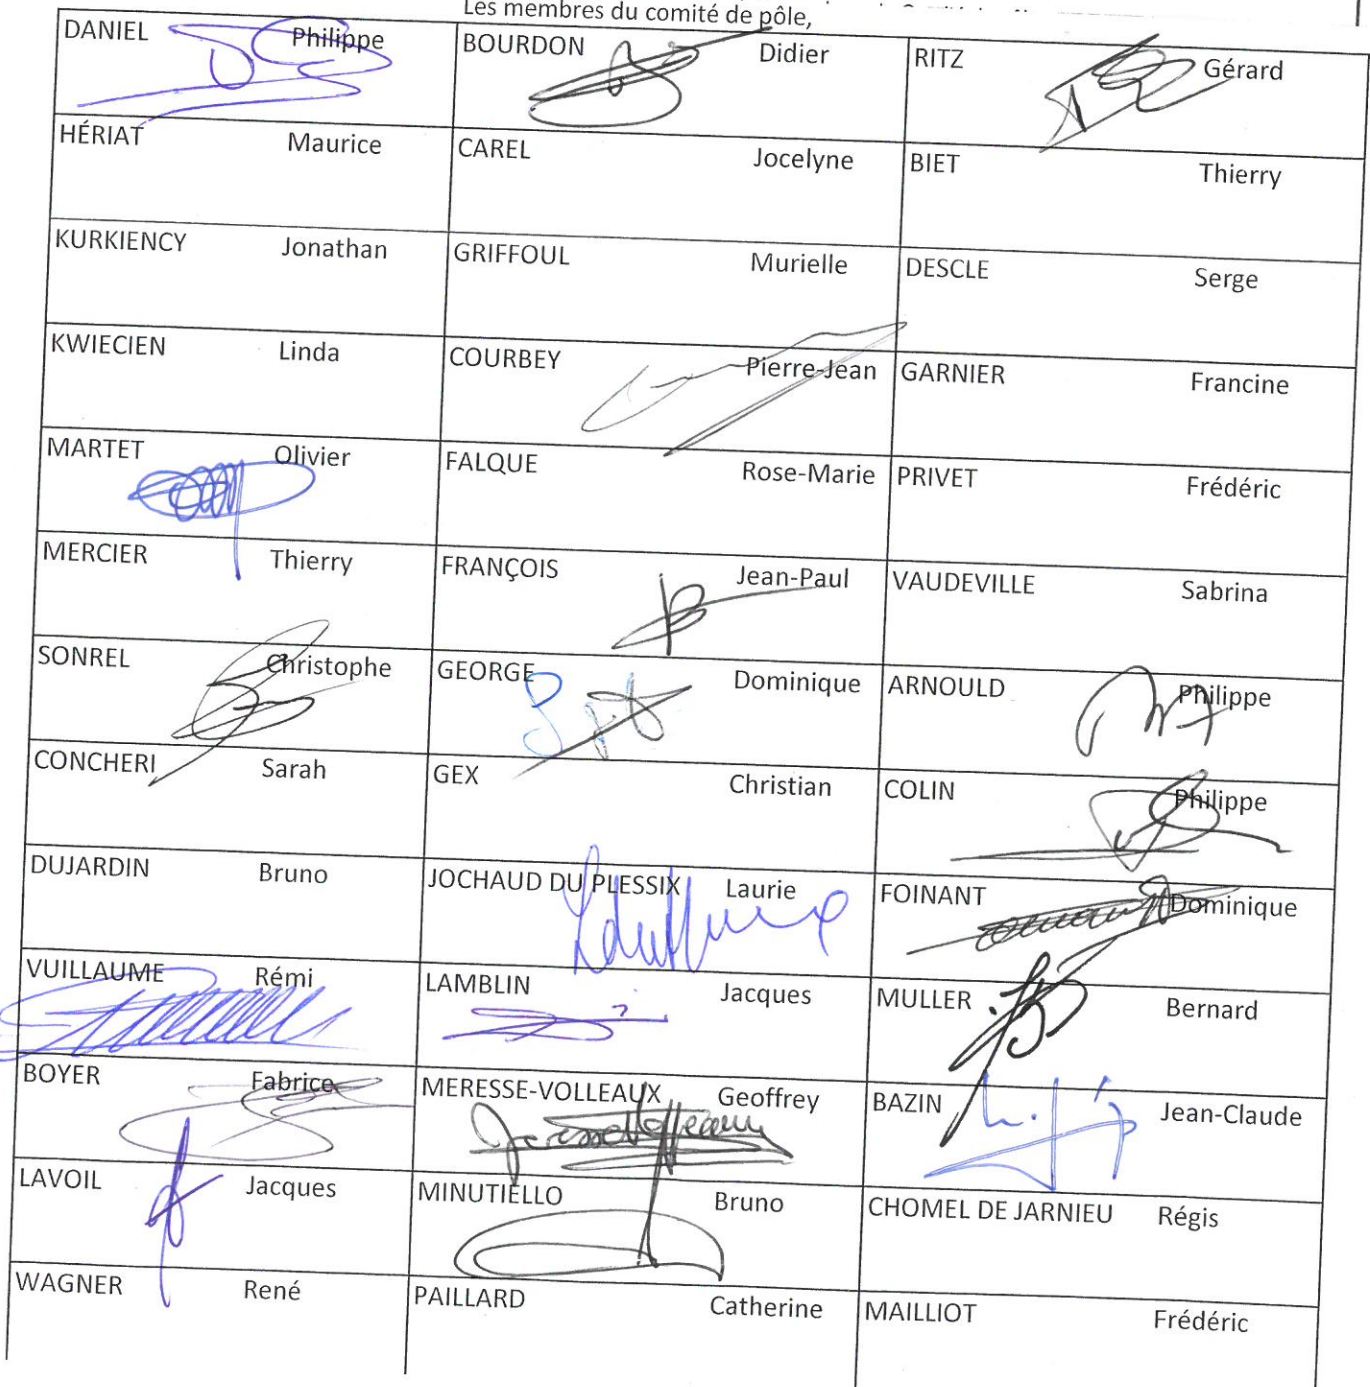 Les membres du comité de pôle,
DANIEL Philippe BOURDON Didier RITZ Gérard
HÉRIAT Maurice CAREL Jocelyne BIET Thierry
KURKIENCY Jonathan GRIFFOUL Murielle DESCLE Serge
KWIECIEN Linda COURBEY Pierre-Jean GARNIER Francine
MARTET Olivier FALQUE Rose-Marie PRIVET Frédéric
MERCIER Thierry FRANÇOIS Jean-Paul VAUDEVILLE Sabrina
SONREL Christophe GEORGE Dominique ARNOULD Philippe
CONCHERI Sarah GEX Christian COLIN Philippe
DUJARDIN Bruno JOCHAUD DU PLESSIX Laurie FOINANT Dominique
VUILLAUME Rémi LAMBLIN Jacques MULLER Bernard
BOYER Fabrice MERESSE-VOLLEAUX Geoffrey BAZIN Jean-Claude
LAVOIL Jacques MINUTIELLO Bruno CHOMEL DE JARNIEU Régis
WAGNER René PAILLARD Catherine MAILLIOT Frédéric